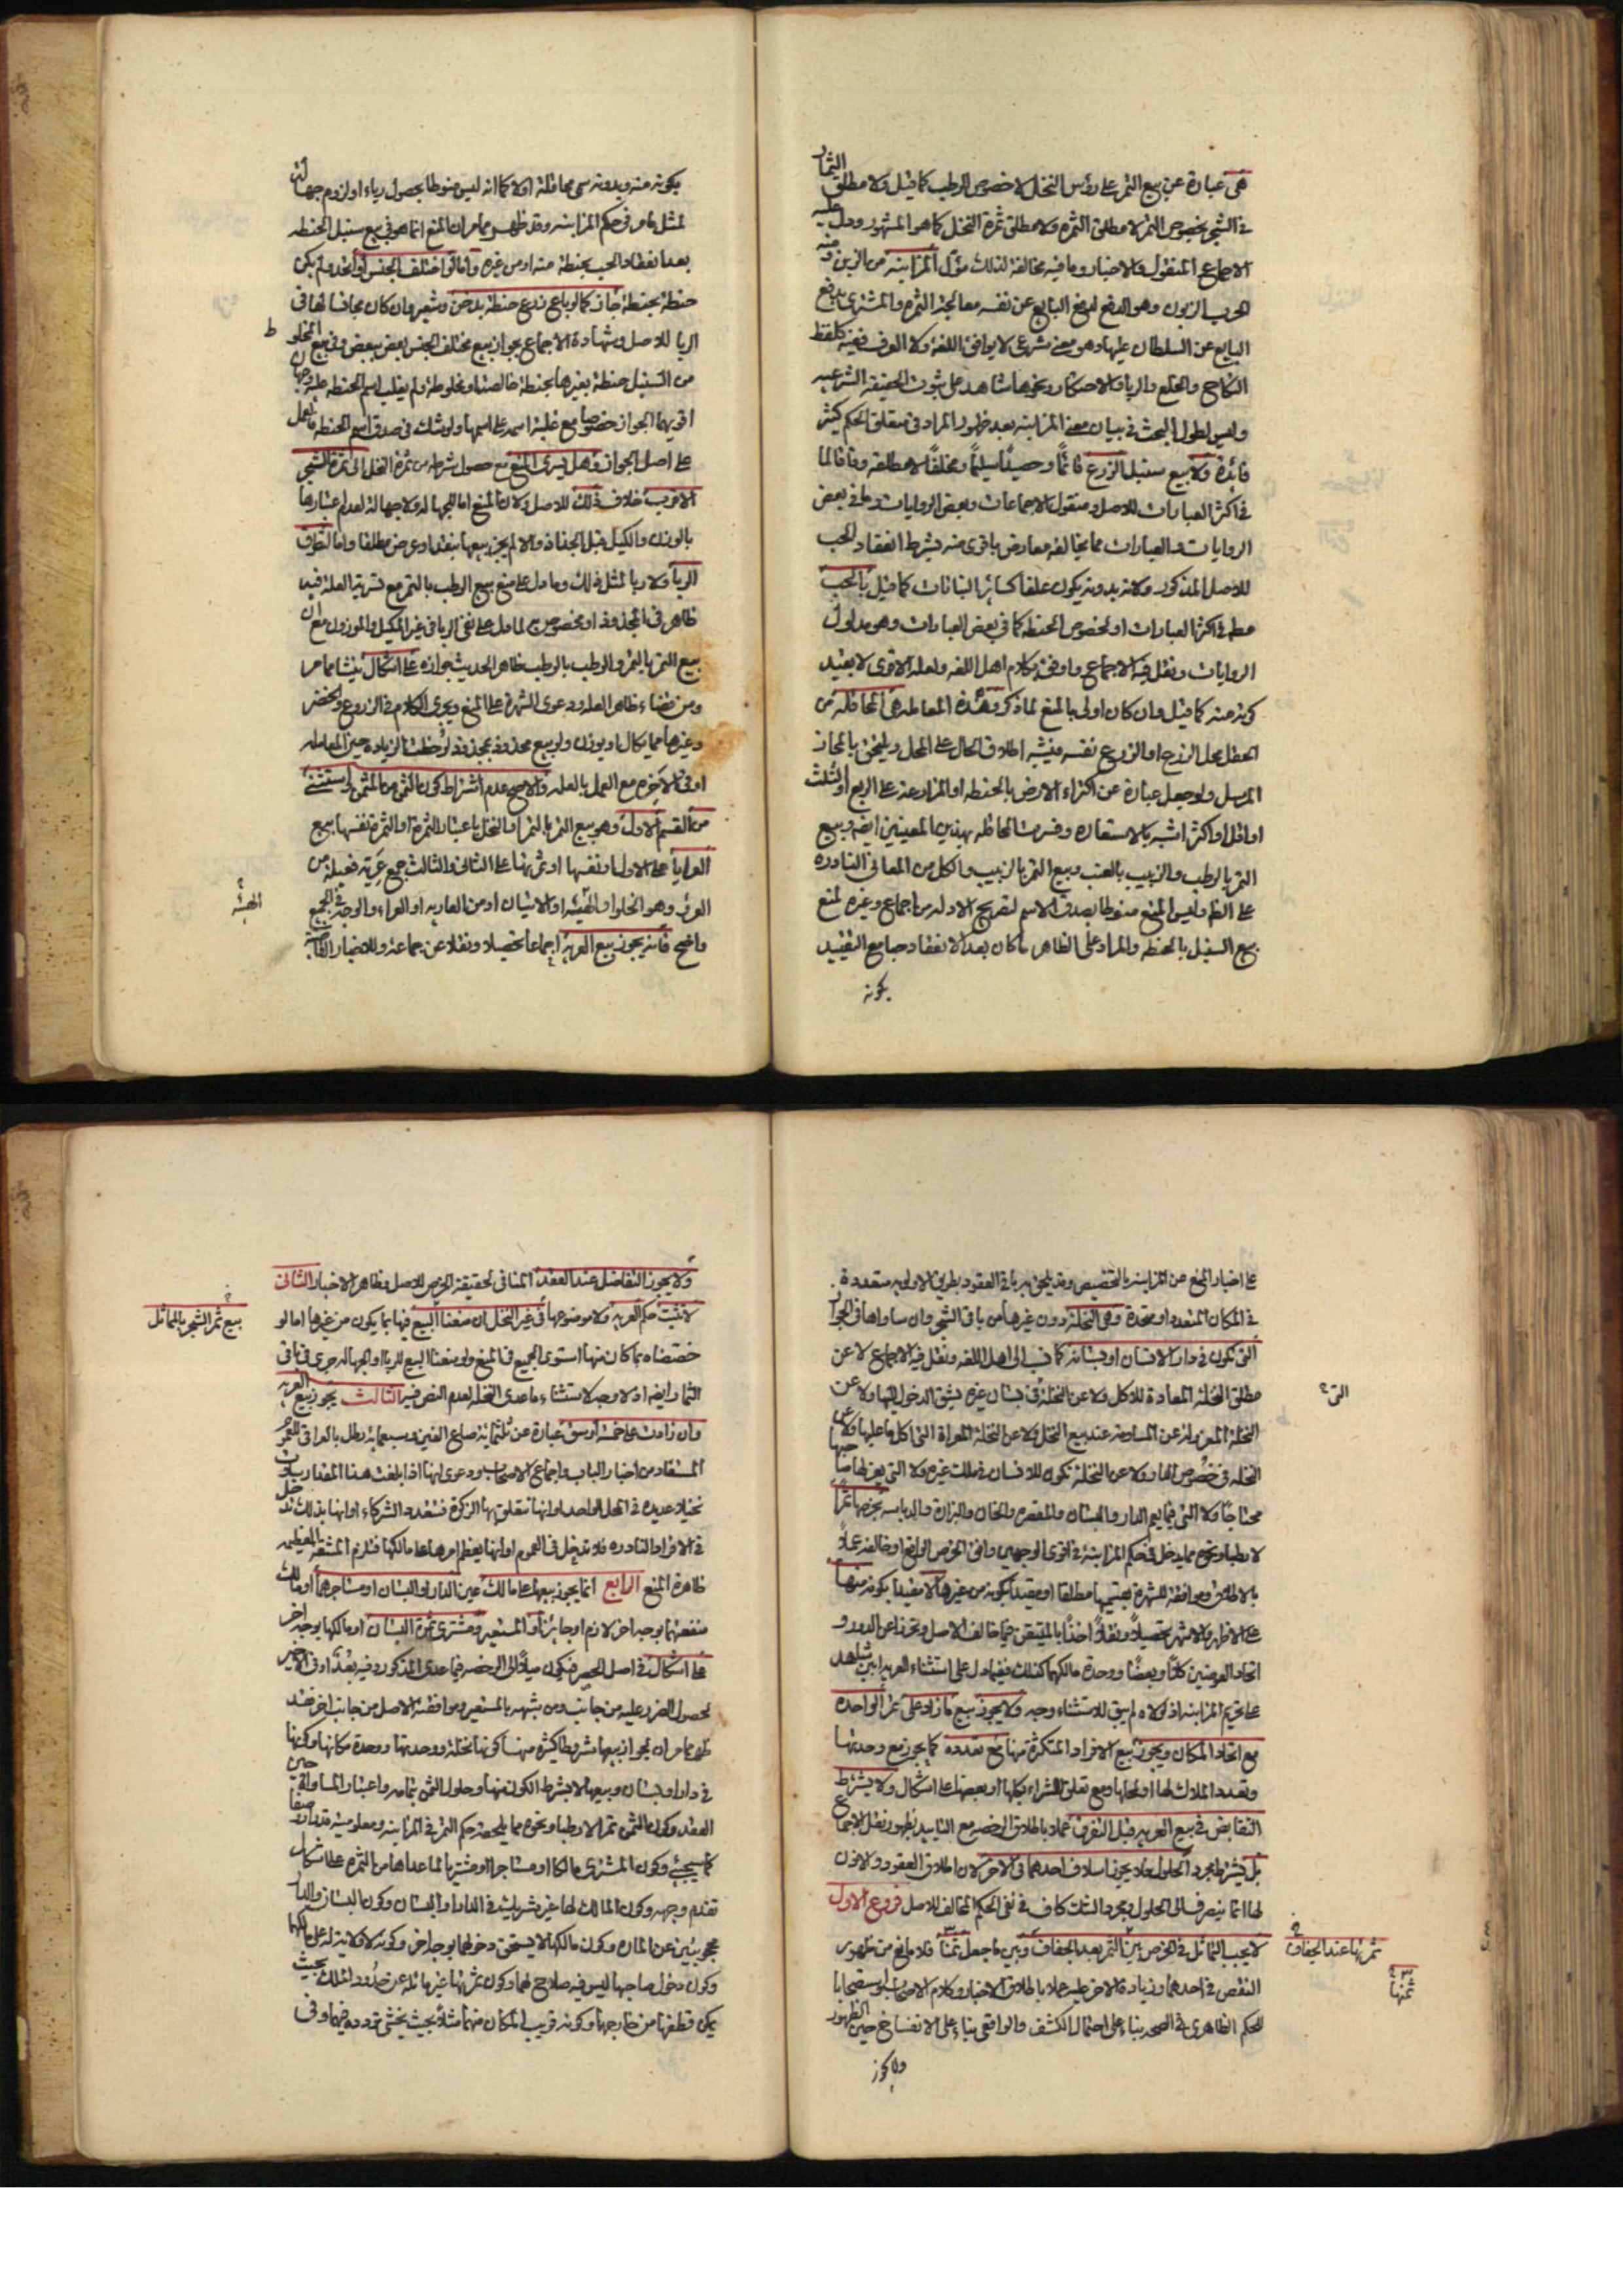 هى عبارة عن بيع الثمر على رؤس النخل لا خصوص الرطب كما قيل ولا مطلق الثمار
فى الشجر بخصوص التمر لا مطلق الثمرة ولا مطلق ثمرة النخل كما هو المشهور ودل عليه
الاجماع المنقول والاخبار وما فيه مخالفة لذلك مؤل المزابنه من الزبن ومنه
الحرب الزبون وهو الدفع لدفع البايع عن نفسه معالجة الثمرة والمشترى يدفع
البايع عن السلطان عليها وهو معنى شرعى لا يوافق اللغة ولا العرف ففيه كلفظ
النكاح والخلع والربا والاحتكار ونحوها شاهد على ثبوت الحقيقة الشرعيه
وليس لطول البحث فى بيان معنى المزابنه بعد ظهور المراد فى متعلق الحكم كثير
فائدة ولا بيع سنبل الزرع قائمًا وحصيدًا سليمًا ومخلفًا لا مطلقه وفاقا لما
فى اكثر العبارات للاصل ومنقول الاجماعات وبعض الروايات وما فى بعض
الروايات والعبارات مما يخالفه معارض باقوى منه بشرط انعقاد الحب
للاصل المذكور ولانه بدونه يكون علفا كسائر النباتات كما قيل بالحب
مطلقا فى اكثر العبارات او لخصوص الحنطه كما فى بعض العبارات وهو مدلول
الروايات ونقل فيه الاجماع واوفق بكلام اهل اللغه ولعله الاقوى لا بقيد
كونه منه كما قيل وان كان اولى بالمنع لما ذكر وهذه المعامله هى المحاقله من
الحقل محل الزرع او الزرع نفسه فيشبه اطلاق الحال على المحل ويلحق بالمجاز
المرسل ولو جعل عبارة عن اكتراء الارض بالحنطه او المزارعة على الربع او الثلث
او اقل او اكثر اشبه بالاستعاره وفسرت المحاقله بهذين المعنيين ايضا وبيع
التمر بالرطب والزبيب بالعنب وبيع التمر بالزبيب والكل من المعانى النادره
على الظ وليس المنع منوطا بصدق الاسم لتصريح الادله من اجماع وغيره لمنع
بيع السنبل بالحنطه والمراد على الظاهر ما كان بعد الانعقاد حبا مع التقييد
بكونه
بكونه منه وبدونه سمى محاقلة اولا كما انه ليس منوطا بحصول رباء او لزوم جهالة
لمثل ما مر فى حكم المزابنه وقد ظهر مما مر ان المنع انما هو فى بيع سنبل الحنطه
بعد انعقاد الحب بحنطة منه او من غيره واما لو اختلف الجنس او اتحد ولم يكن
حنطة بحنطة جاز كما لو باع زرع حنطة بدخن وشعير وان كان مجانسا لها فى
الربا للاصل وشهادة الاجماع بجواز بيع مختلف الجنس بعض ببعض وفى بيع المخلوط
من السنبل حنطة بغيرها بحنطة خالصة او مخلوطة ولم يغلب اسم الحنطه عليه وجهان
اقويهما الجواز خصوصا مع غلبة اسمه على اسمها ولو شك فى صدق اسم الحنطه فالعمل
على اصل الجواز وهل يسرى المنع مع حصول شرطه من ثمرة النخل الى ثمرة الشجر
الاقرب خلاف ذلك للاصل ولان المنع اما للجهاله ولا جهالة لعدم اعتبارها
بالوزن والكيل قبل الجذاذ والا لم يجز بيعها بنقد او عرض مطلقا واما لتطرق
الربا ولا ربا لمثل ذلك وما دل على منع بيع الرطب بالتمر مع تسرية العلة فيه
ظاهر فى المجذوذ او مخصوص بما دل على نفى الربا فى غير المكيل والموزون مع ان
بيع التمر بالتمر والرطب بالرطب ظاهر الحديث جوازه على اشكال ينشا مما مر
ومن قضاء ظاهر العله ودعوى الشهرة على المنع ويجرى الكلام فى الزروع والخضر
وغيرها مما يكال او يوزن ولو بيع مجذوذ بمجذوذ لوحظت الزياده حين المعامله
او فى الاخره مع العمل بالعله والاصح عدم اشتراط كون الثمن من المثمن واستثنى
من القسم الاول وهو بيع التمر بالتمر او النخل باعتبار الثمرة او الثمرة نفسها بيع
العرايا على الاول او نفسها او ثمرتها على الثانى والثالث جمع عريه فعيلة من
العرو وهو الخلو او الهيئه او الاتيان او من العاريه او العراء والوجه فى الجميع
واضح فانه يجوز بيع العريه اجماعا تحصيلا ونقلا عن جماعة وللاخبار القاضيه
الهبه
على اخبار المنع عن المزابنه بالتخصيص وقد يلحق به باقى العقود بطريق الاولويه متعددة
فى المكان المتعدد او متحدة وهى النخلة دون غيرها من باقى الشجر وان ساواها فى الجوار
التى تكون فى دار الانسان او بستانه كما نسب الى اهل اللغه ونقل فيه الاجماع لا عن
مطلق النخلة المعادة للاكل ولا عن النخلة فى بستان غيره يشق الدخول اليها ولا عن
النخلة المعزوله عن المساومة عند بيع النخل ولا عن النخلة المعراة التى اكل ما عليها ولا عن
النخله فى خصوص الدار ولا عن النخلة تكون للانسان فى ملك غيره ولا التى يعريها صاحبها
محتاجًا ولا التى فيما يعم الدار والبستان والمقصره والخان والبزازة والدباسه بخرصها تمرًا
لا رطبا ونحوه مما يدخل فى حكم المزابنة فى اقوى الوجهين وافق الخرص الواقع او خالفه عملًا
بالاطلاق وموافقة للشهرة بقسميها مطلقا او مقيدا بكونه من غيرها لا مقيدا بكونه منها
على الاظهر والاشهر تحصيلًا ونقلًا اخذًا بالمتيقن فيما خالف الاصل وتحرزا عن الدور و
اتحاد العوضين كلا او بعضًا ووحدة مالكهما كذلك ففيما دل على استثناء العريه ابين شاهد
على تحريم المزابنه اذ لولاه لم يبق للاستثناء وجه ولا يجوز بيع ما زاد على ثمر الواحده
مع اتحاد المكان ويجوز بيع الافراد المتكثرة منها مع تعدده كما يجوز مع وحدتها
وتعدد الملاك لها او لمحلها ومع تعلق الشراء بكلها او بعضها على اشكال ولا يشترط
التقابض فى بيع العريه قبل التفرق عملا باطلاق الرخصه مع التاييد بظهور نقل الاجماع
بل يشترط مجرد الحلول فلا يجوز اسلاف احدهما فى الاخر لان اطلاق العقود والاذن
لها انما ينصرف الى الحلول ومجرد الشك كاف فى نفى الحكم المخالف للاصل فروع الاول
لا يجب التماثل فى الخرص بين التمر بعد الجفاف وبين ما جعل ثمنا فلا مانع من ظهور
النقص فى احدهما وزيادة الاخر عليه عملا باطلاق الاخبار وكلام الاصحاب واستصحابا
للحكم الظاهرى فى الصحه بناء على احتمال الكشف والواقعى بناء على الانفساخ حين الظهور
ثمرتها عند الجفاف
ثمنها
ولا يجوز
ولا يجوز التفاضل عند العقد المنافى لحقيقة الخرص للاصل وظاهر الاخبار الثانى
لا تثبت حكم العريه ولا موضوعها فى غير النخل ان منعنا البيع فيها بما يكون من غيرها اما لو
خصصناه بما كان منها استوى الجميع فى المنع ولو منعنا البيع للربا او الجهاله جرى فى باقى
الثمار ايضا اذ لا وجه لاستثناء ما عدى النخله لعدم النص فيه الثالث يجوز بيع العريه
وان زادت على خمسة اوسق عبارة عن ثلثمائة صاع الفين وسبعمايه رطل بالعراقى للعموم
المستفاد من اخبار الباب واجماع الاصحاب ودعوى انها اذا بلغت هذا المقدار ساوت
نخيلا عديده فى المحل الواحد او انها تتعلق بها الزكوة فتتعدد الشركاء او انها بذلك تدخل
فى الافراد النادره فلا تدخل فى العموم او انها يعظم امرها على مالكها فتلزم المشقة العظيمه
ظاهرة المنع الرابع انما يجوز بيعها على مالك عين الدار او البستان او مستاجرهما او مالك
منفعتهما بوجه اخر لازم او جائز او المستعير ومشترى ثمرة البستان او مالكها بوجه اخر
على اشكال فى اصل الحصر فتكون ميلًا الى الرخصه فيما عدى المذكور وفيه بُعد او فى الاخير
لحصول الضرر عليه من جانب ومن شبهه بالمستعير وموافقة الاصل من جانب اخر فقد
ظهر مما مر ان لجواز بيعها شروطا كثيرة منها كونها نخلة ووحدتها ووحدة مكانها وكونها
فى دار او بستان وبيعها لا بشرط الكون منها وحلول الثمن بتمامه واعتبار المساواة حين
العقد وكون الثمن تمرا لا رطبا ونحوه مما يلحقه حكم التمر فى المزابنه ومعلوميته قدرا ووصفا
كما سيجئ وكون المشترى مالكا او مستاجرا او مشتريا لما عداها من الثمره على اشكال
تقدم وجهه وكون المالك لها غير شريك فى الدار او البستان وكون البستان والدار
محجوبين عن الماره وكون مالكها لا يستحق دخولها بوجه اخر وكونه لا ولاية له على مالكها
وكون دخول صاحبها ليس فيه صلاح لهما وكون ثمرتها غير مائلة عن حدود الملك بحيث
يمكن قطفها من خارجها وكونه قريب المكان منهما مثلًا بحيث يخشى تردده فيهما وفى
بيع ثمر الشجر بالمماثل